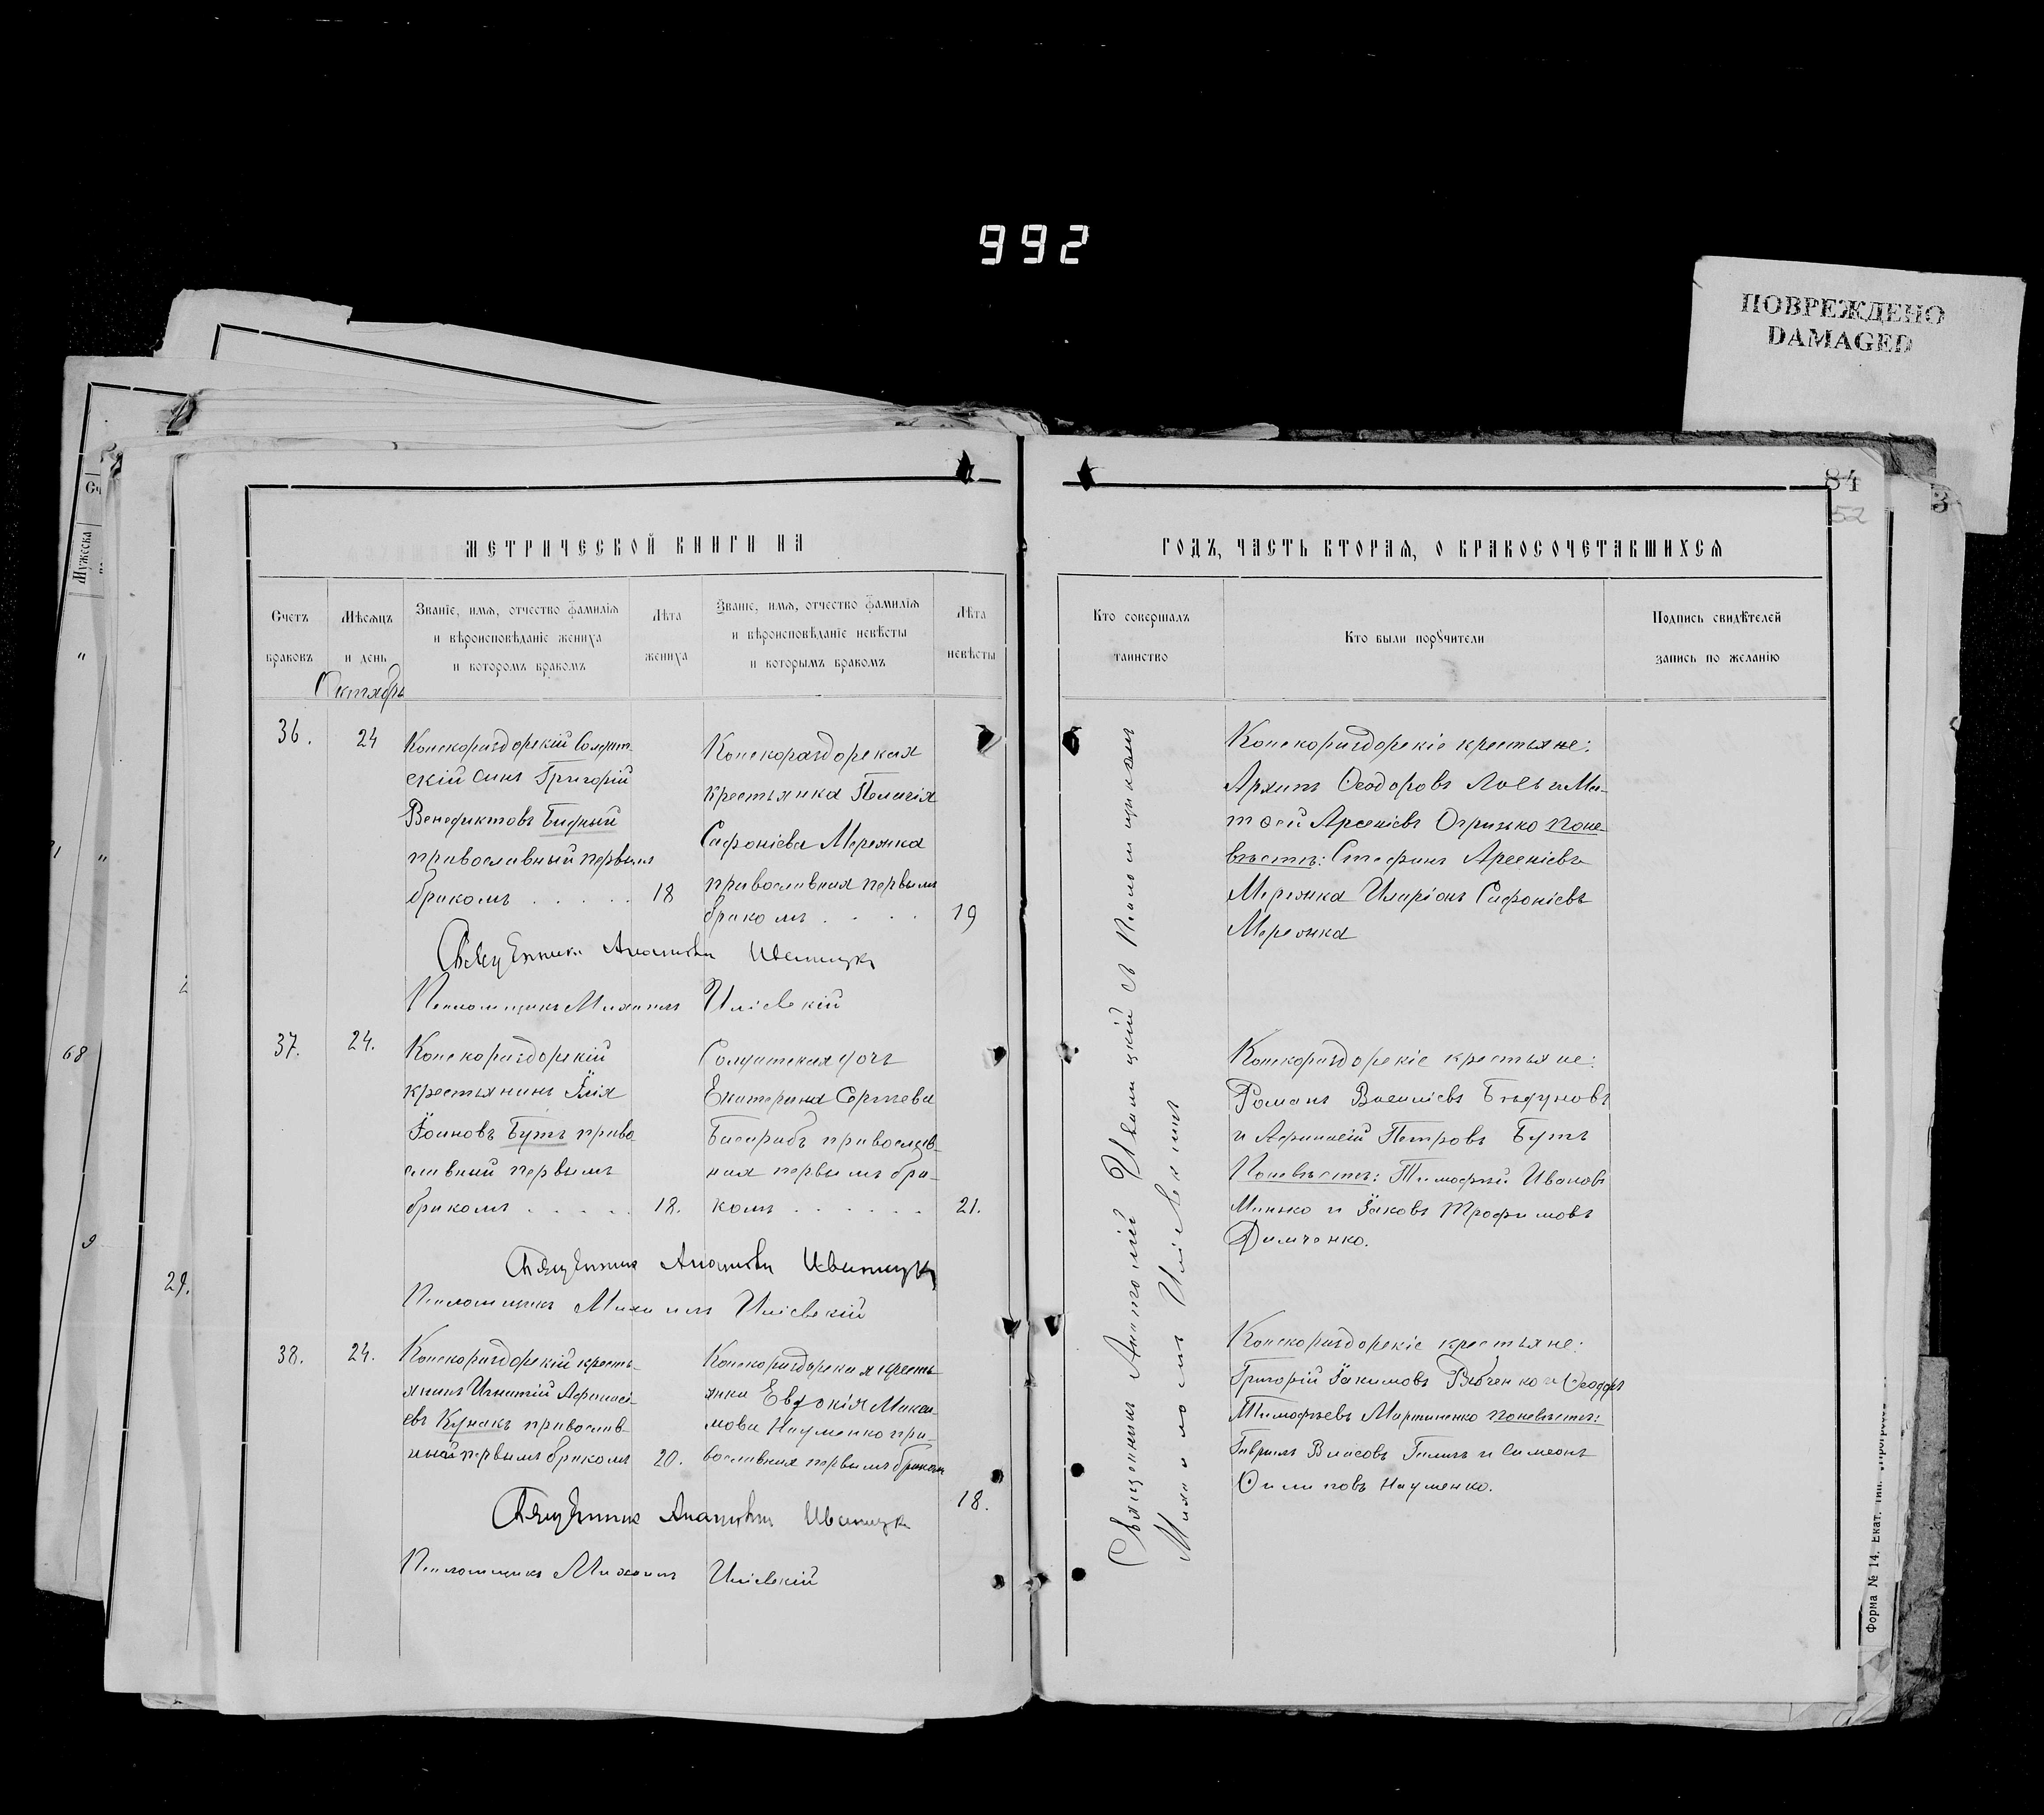 992
ПОВРЕЖДЕНО
DAMAGED
84
52
МЕТРИЧЕСКОЙ КНИГИ НА
ГОДЪ, ЧАСТЬ ВТОРАЯ, О БРАКОСОЧЕТАВШИХСЯ
Счетъ
браковъ
Мѣсяцъ
и день
Званіе, имя, отчество фамилія
и вѣроисповѣданіе жениха
и которомъ бракомъ
Лѣта
жениха
Званіе, имя, отчество фамилія
и вѣроисповѣданіе невѣсты
и которымъ бракомъ
Лѣта
невѣсты
Кто совершалъ
таинство
Кто были порꙋчители
Подпись свидѣтелей
запись по желанію
Октябрь
36.
24
Конскораздорскій Солдат-
скій сынъ Григорій
Венедиктовъ Бидный
православный первымъ
бракомъ . . . . . 18
Конскораздорская
крестьянка Пелагія
Сафоніева Мережка
православная первымъ
бракомъ . . . . 19
Священникъ Анатолій Ивановъ
Псаломщикъ Михаилъ Иліевскій
Конскораздорскіе крестьяне:
Архипъ Ѳеодоровъ Лось и Ма-
тѳей Арсеніевъ Огрызько по не-
вѣстѣ: Стефанъ Арсеніевъ
Мережка Иларіонъ Сафоніевъ
Мережка
37.
24.
Конскораздорскій
крестьянинъ Илія
Іоановъ Бутъ право-
славный первымъ
бракомъ . . . . . 18.
Солдатская дочь
Екатерина Сергѣева
Басарабъ православ-
ная первымъ бра-
комъ . . . . . . 21.
Псаломщикъ Михаилъ Иліевскій
Конскораздорскіе крестьяне:
Романъ Василіевъ Бѣдуновъ
и Афанасій Петровъ Бутъ
По невѣстѣ: Тимофей Ивановъ
Минько и Іаковъ Трофимовъ
Димченко.
38.
24.
Конскораздорскій кресть-
янинъ Игнатій Афанасі-
евъ Кунакъ православ-
ный первымъ бракомъ 20.
Конскораздорская кресть-
янка Евдокія Макси-
мова Науменко пра-
вославная первымъ бракомъ
18.
Псаломщикъ Михаилъ Иліевскій
Конскораздорскіе крестьяне:
Григорій Іакимовъ Вовченко и Ѳеодоръ
Тимофѣевъ Мартиненко по невѣстѣ:
Гавриилъ Власовъ Галичъ и Симеонъ
Филиповъ Науменко.
Священникъ Анатолій съ Псаломщикомъ
Михаиломъ Иліевскимъ
Форма № 14. Екат. тип.
68
29.